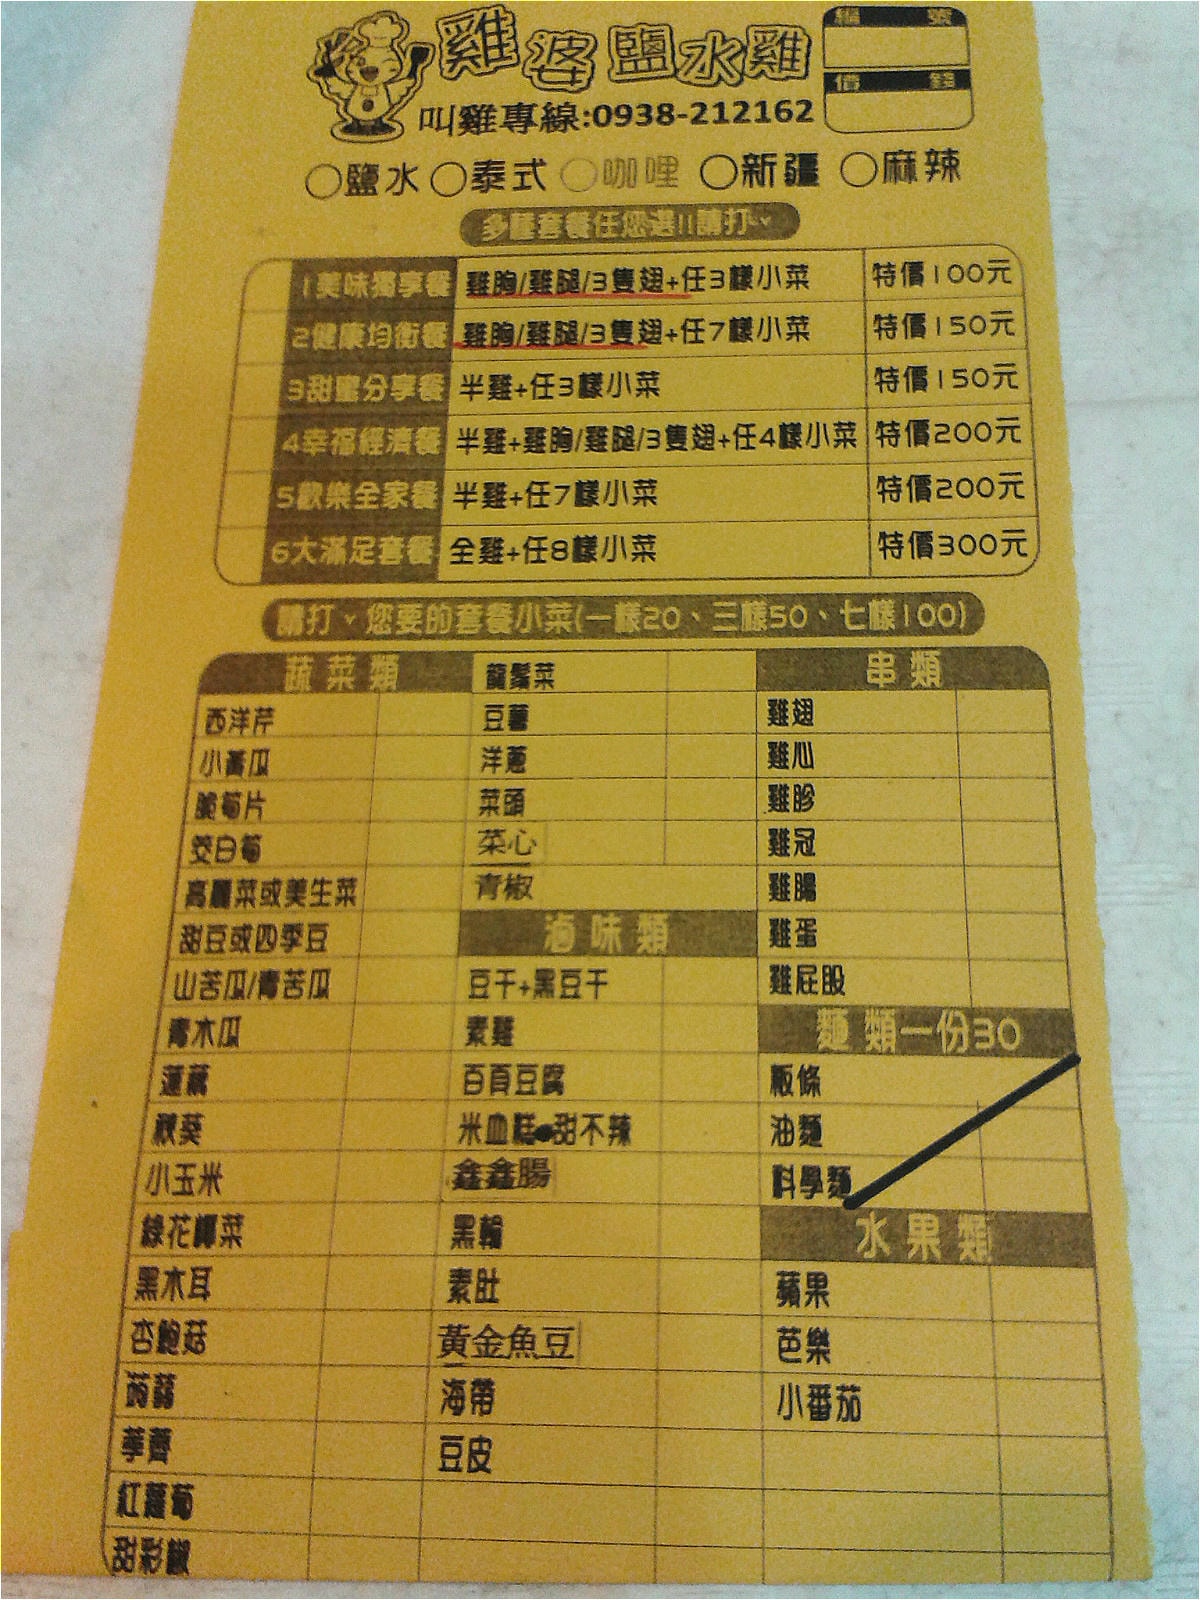 雞婆鹽水雞
編 號
價 錢
叫雞專線:0938-212162
○鹽水 ○泰式 ○咖哩 ○新疆 ○麻辣
多種套餐任您選!!請打ˇ
1美味獨享餐 雞胸/雞腿/3隻翅+任3樣小菜 特價100元
2健康均衡餐 雞胸/雞腿/3隻翅+任7樣小菜 特價150元
3甜蜜分享餐 半雞+任3樣小菜 特價150元
4幸福經濟餐 半雞+雞胸/雞腿/3隻翅+任4樣小菜 特價200元
5歡樂全家餐 半雞+任7樣小菜 特價200元
6大滿足套餐 全雞+任8樣小菜 特價300元
請打ˇ您要的套餐小菜(一樣20、三樣50、七樣100)
蔬菜類
西洋芹
小黃瓜
脆筍片
筊白筍
高麗菜或美生菜
甜豆或四季豆
山苦瓜/青苦瓜
青木瓜
蓮藕
秋葵
小玉米
綠花椰菜
黑木耳
杏鮑菇
蒟蒻
荸薺
紅蘿蔔
甜彩椒
龍鬚菜
豆薯
洋蔥
菜頭
菜心
青椒
滷味類
豆干+黑豆干
素雞
百頁豆腐
米血糕●甜不辣
鑫鑫腸
黑輪
素肚
黃金魚豆
海帶
豆皮
串類
雞翅
雞心
雞胗
雞冠
雞腸
雞蛋
雞屁股
麵類一份30
粄條
油麵
科學麵
水果類
蘋果
芭樂
小番茄